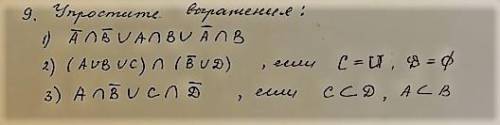 9. Упростите выражения:
1) A̅ ∩ B̅ ∪ A ∩ B ∪ A̅ ∩ B
2) (A ∪ B ∪ C) ∩ (B̅ ∪ D) , если C = U, D = ∅
3) A ∩ B̅ ∪ C ∩ D̅ , если C ⊂ D, A ⊂ B